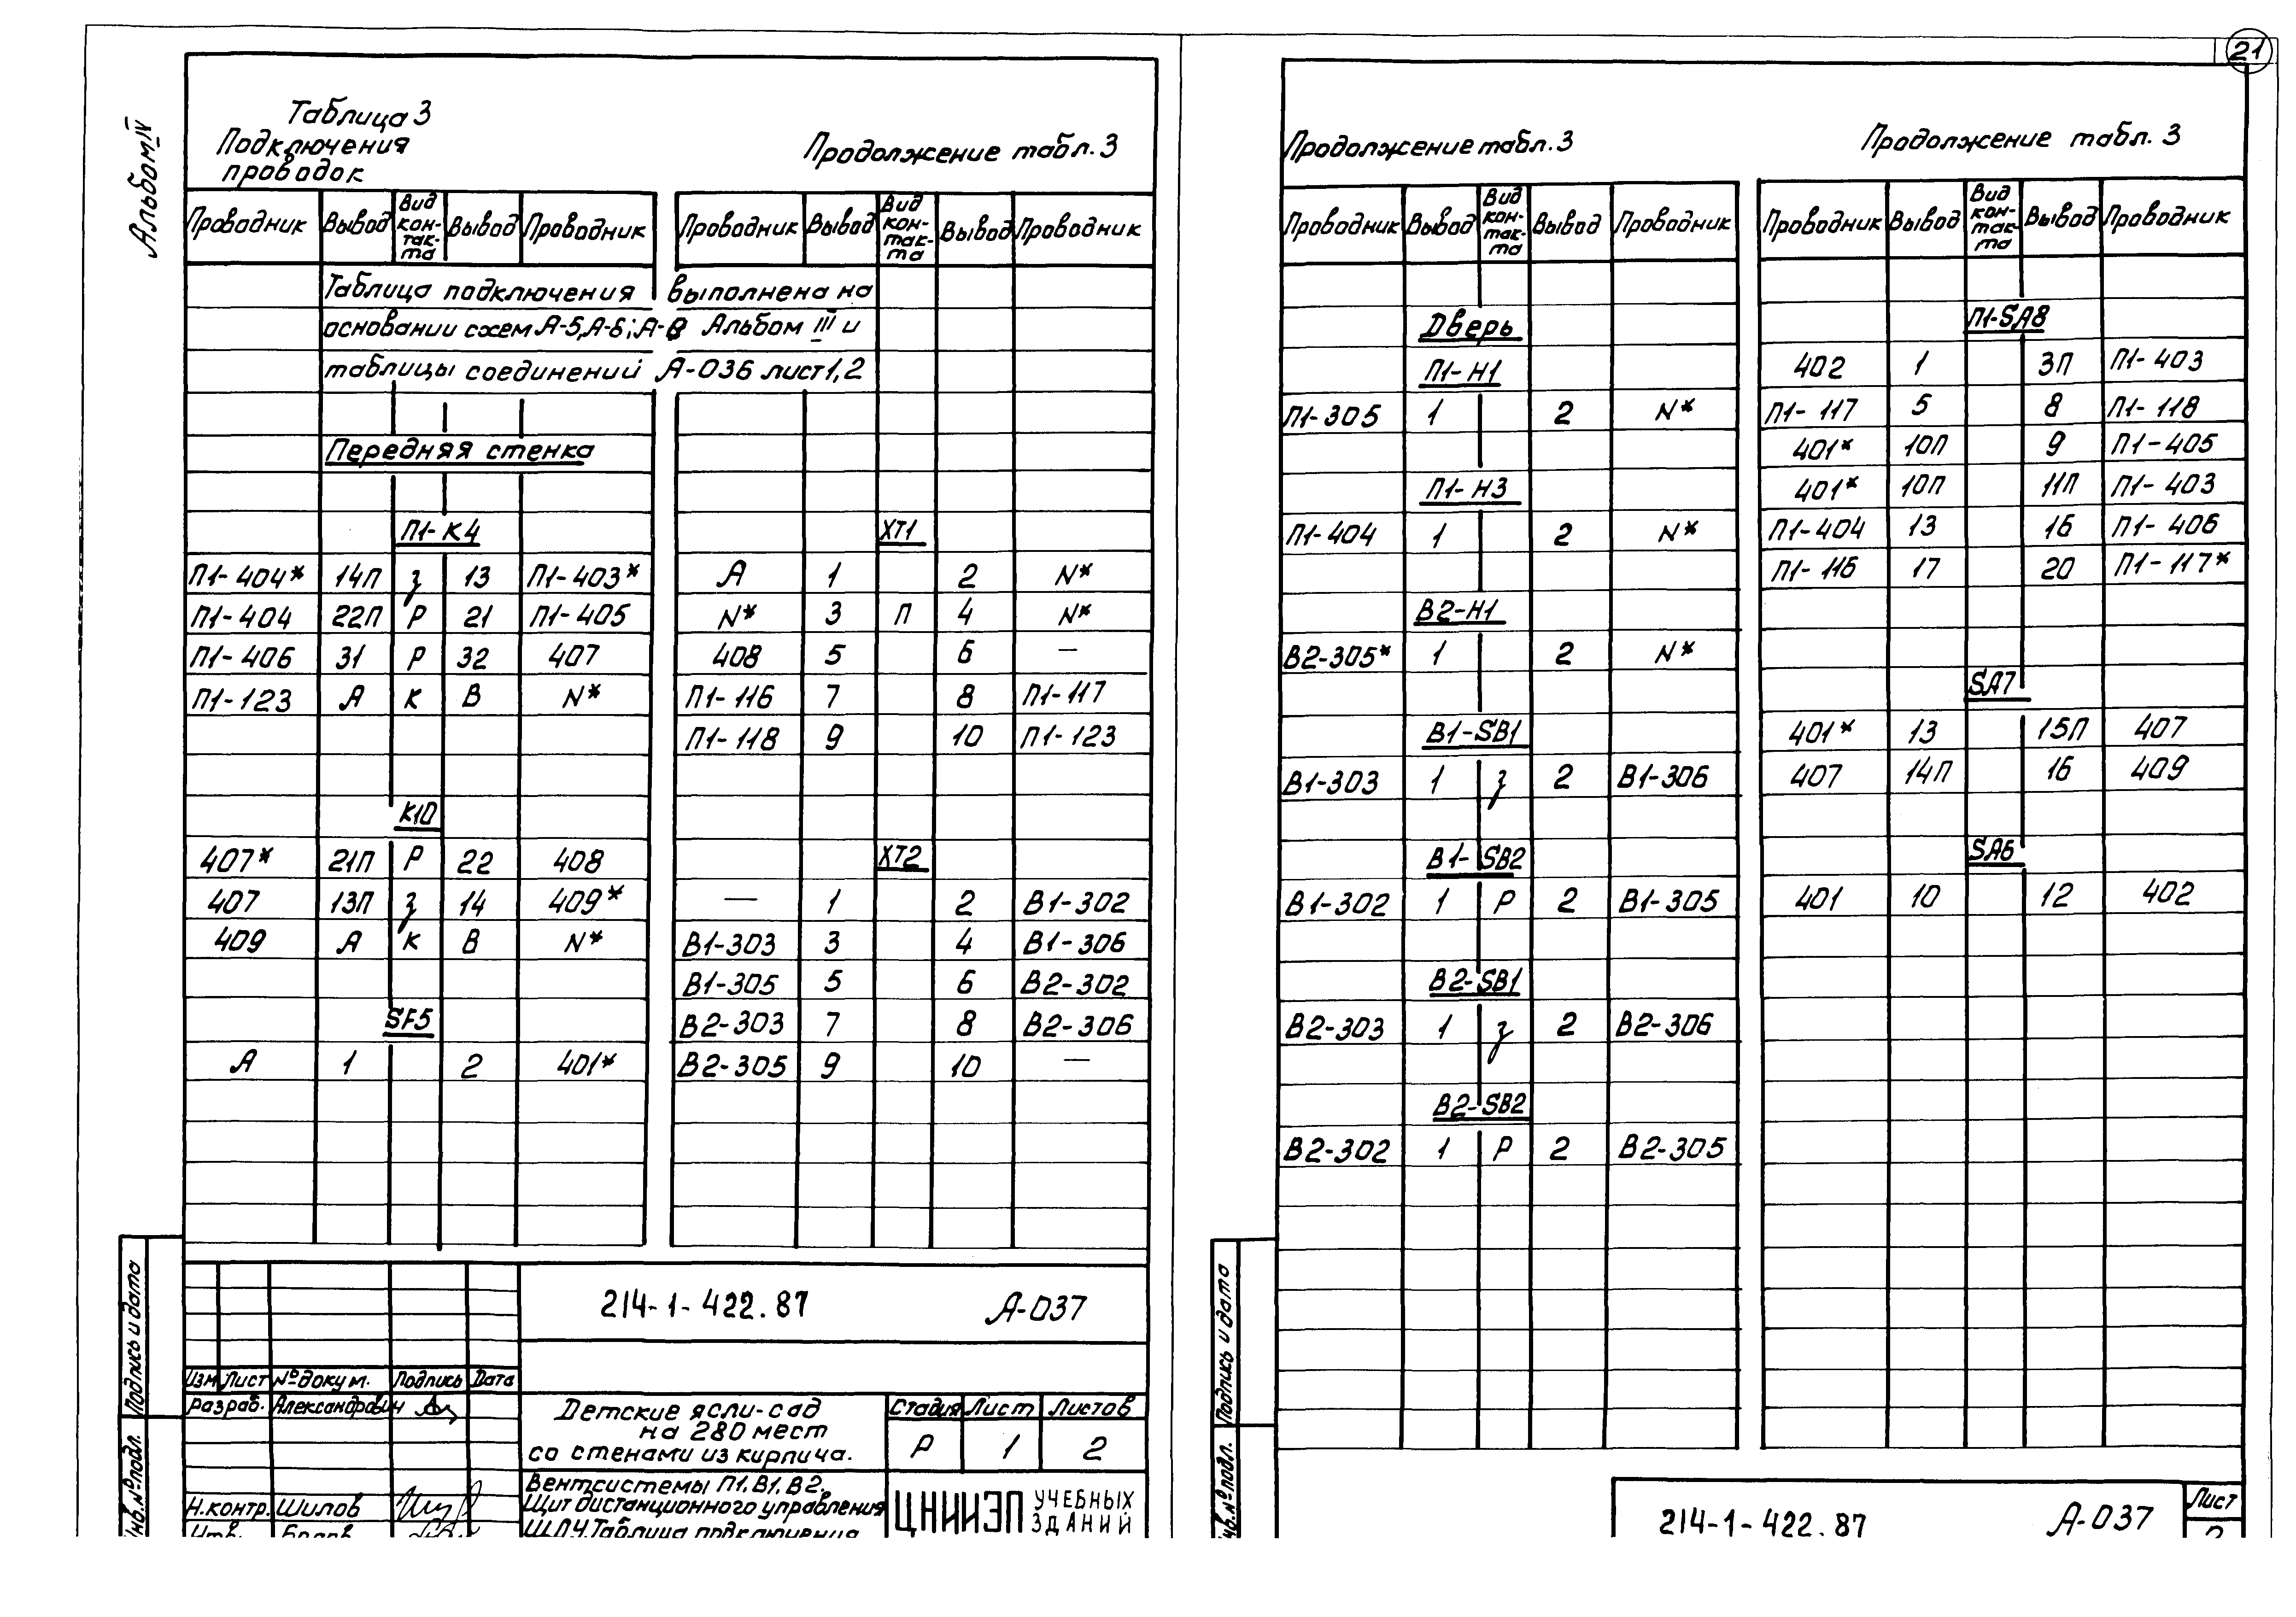 21
Альбом IV
Таблица 3
Подключения
проводок
Проводник Вывод Вид кон-так-та Вывод Проводник
Таблица подключения выполнена на
основании схем А-5,А-6;А-8 Альбом III и
таблицы соединений А-036 лист1,2
Передняя стенка
П1-К4
П1-404* 14П з 13 П1-403*
П1-404 22П Р 21 П1-405
П1-406 31 Р 32 407
П1-123 А К В N*
К10
407* 21П Р 22 408
407 13П з 14 409*
409 А К В N*
SF5
А 1 2 401*
Продолжение табл.3
Проводник Вывод Вид кон-так-та Вывод Проводник
ХТ1
А 1 2 N*
N* 3 П 4 N*
408 5 6 —
П1-116 7 8 П1-117
П1-118 9 10 П1-123
ХТ2
— 1 2 В1-302
В1-303 3 4 В1-306
В1-305 5 6 В2-302
В2-303 7 8 В2-306
В2-305 9 10 —
214-1-422.87 А-037
Изм Лист №докум. Подпись Дата
Разраб. Александрович
Н.контр. Шилов
Детские ясли-сад
на 280 мест
со стенами из кирпича.
Стадия Лист Листов
Р 1 2
Вентсистемы П1.В1,В2.
Щит дистанционного управления
ЩДУ.Таблица подключения
ЦНИИЭП УЧЕБНЫХ
ЗДАНИЙ
Подпись и дата
Инв.№подл.
Продолжение табл.3
Проводник Вывод Вид кон-так-та Вывод Проводник
Дверь
П1-Н1
П1-305 1 2 N*
П1-Н3
П1-404 1 2 N*
В2-Н1
В2-305* 1 2 N*
В1-SB1
В1-303 1 з 2 В1-306
В1-SB2
В1-302 1 Р 2 В1-305
В2-SB1
В2-303 1 з 2 В2-306
В2-SB2
В2-302 1 Р 2 В2-305
Продолжение табл.3
Проводник Вывод Вид кон-так-та Вывод Проводник
П1-SA8
402 1 3П П1-403
П1-117 5 8 П1-118
401* 10П 9 П1-405
401* 10П 11П П1-403
П1-404 13 16 П1-406
П1-116 17 20 П1-117*
SA7
401* 13 15П 407
407 14П 16 409
SA6
401 10 12 402
Подпись и дата
Инв.№подл.
214-1-422.87 А-037
Лист